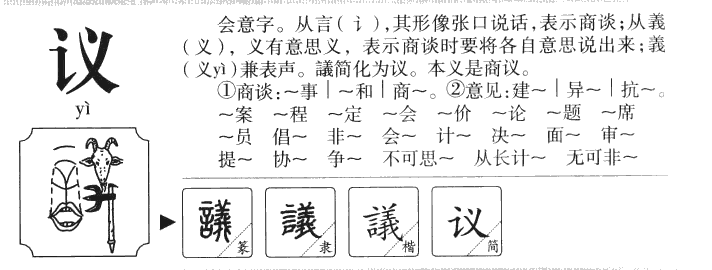 议
yì
会意字。从言(讠),其形像张口说话,表示商谈;从義
(义),义有意思义,表示商谈时要将各自意思说出来;義
(义yì)兼表声。議简化为议。本义是商议。
①商谈:~事|~和|商~。②意见:建~|异~|抗~。
~案 ~程 ~定 ~会 ~价 ~论 ~题 ~席
~员 倡~ 非~ 会~ 计~ 决~ 面~ 审~
提~ 协~ 争~ 不可思~ 从长计~ 无可非~
議 篆
議 隶
議 楷
议 简